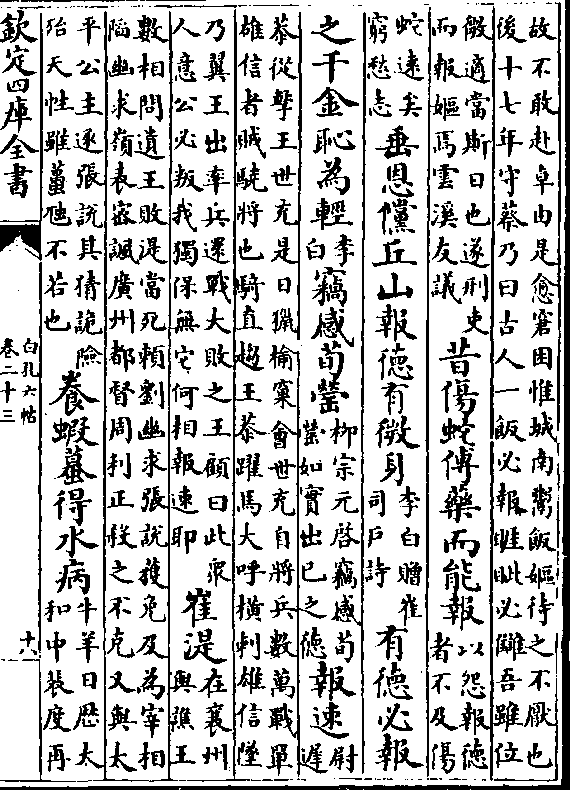 故不敢赴卓由是愈窘困惟城南粥飯嫗待之不厭也
後十七年守蔡乃曰古人一飯必報睚眦必讎吾雖位
微適當斯日也遂刑吏
而報嫗焉雲溪友議
昔傷蛇傅藥而能報
以怨報德
者不及傷
蛇遠矣
窮愁志
垂恩儻丘山報德有微身
李白贈崔
司戶詩
有德必報
之千金恥為輕
李
白
竊感荀罃
柳宗元啓竊感荀
罃如實出已之德
報速
尉
遲
恭從擊王世充是日獵榆窠會世充自將兵數萬戰單
雄信者賊驍將也騎直趨王恭躍馬大呼橫刺雄信墜
乃翼王出率兵還戰大敗之王顧曰此衆
人意公必叛我獨保無它何相報速耶
崔湜
在襄州
與譙王
數相問遺王敗湜當死賴劉幽求張說護免及為宰相
陷幽求嶺表密諷廣州都督周利正殺之不克又與太
平公主逐張說其猜詭險
殆天性雖蠆虺不若也
養蝦蟇得水病
牛羊日歷太
和中裴度再
欽定四庫全書
白孔六帖
卷二十三
十六